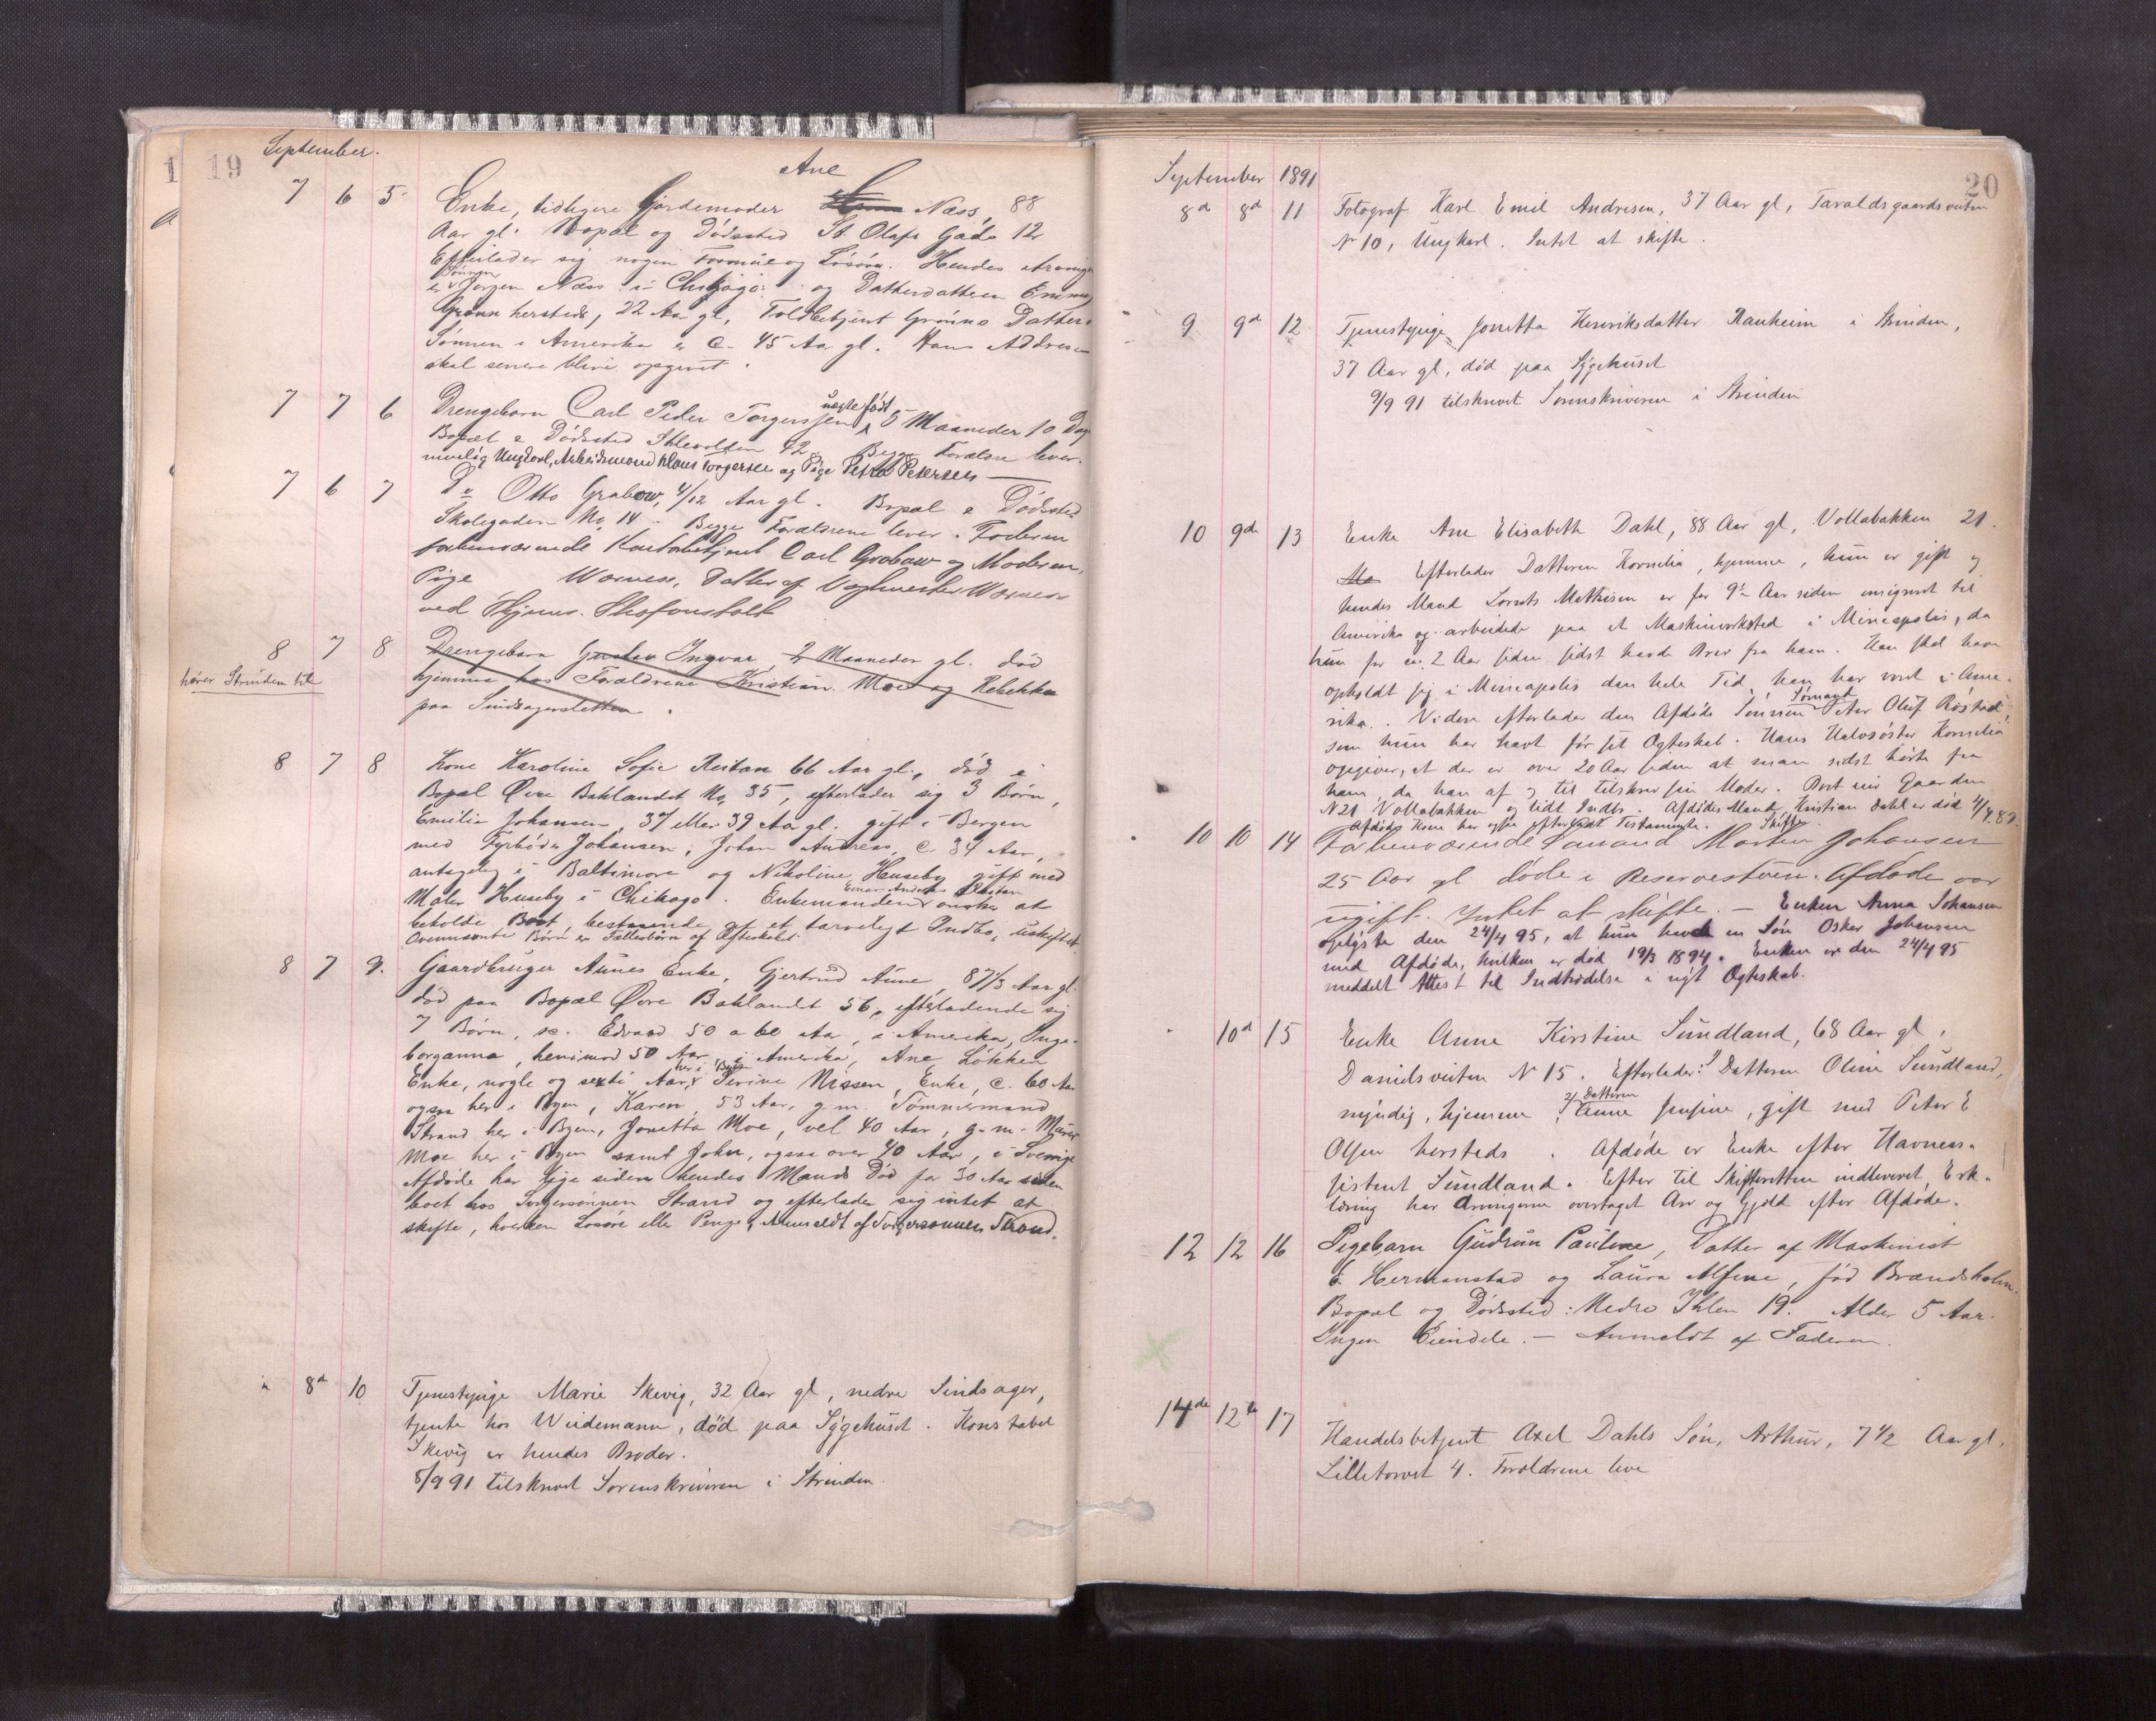 19
September.
7 6 5 Enke, tidligere Gjordemoder Ane Næss, 88
Aar gl. Bopæl og Dødssted St Olafs Gade 12
Efterlader sig nogen Formue og Løsøre. Hendes Arvinger
er Sønnen Jørgen Næss i Chikago og Datterdatteren Emma
Grønn hersteds, 22 Aar gl, Toldbetjent Grønns Datter.
Sønnen i Amerika er c. 45 Aar gl. Hans Addresse
skal senere blive opgivet.
7 7 6 Drengebarn Carl Peder Torgerssen, uægte født 5 Maaneder 10 Dage
Bopæl & Dødssted Ihlevolden 42. Begge Forældre lever.
nemlig Ungkarl, Arbeidsmand Klaus Torgersen og Pige Petra Petersen
7 6 7 Do Otto Grabow, 4/12 Aar gl. Bopæl & Dødssted
Skolegaden No 14. Begge Forældrene lever. Faderen
forhenværende Kontorbetjent Carl Grabow og Moderen,
Pige Warness, Datter af Vagtmester Warness
ved Thjems. Strafanstalt
8 7 8 Drengebarn Gustav Ingvar, 2 Maaneder gl. død
hører Strinden til
hjemme hos Forældrene Kristian Moe og Rebekka
paa Sindsagersletten.
8 7 8 Kone Karoline Sofie Reitan 66 Aar gl., død i
Bopæl Øvre Baklandet No 35, efterlader sig 3 Børn,
Emilie Johansen, 37 eller 39 Aar gl. gift i Bergen
med Fyrbøder Johansen, Johan Andreas, c. 34 Aar,
antagelig i Baltimore og Nikoline Huseby gift med
Maler Huseby i Chikago. Enkemanden Einar Andreas ønsker at
beholde Boet, bestaaende af et tarveligt Indbo, uskiftet.
Ovennævnte Børn er Fællesbørn af Ægteskabet.
8 7 9. Gaardbruger Aunes Enke, Gjertrud Aune, 87 1/3 Aar gl.
død paa Bopæl Øvre Baklandet 56, efterladende sig
7 Børn, sc. Edvard 50 a 60 Aar, i Amerika, Inge-
borganna, henimod 50 Aar, i Amerika, Ane Løkken
Enke, nogle og sexti Aar, her i Byen Serine Nissen, Enke, c. 60 Aar
ogsaa her i Byen, Karen, 53 Aar, g. m. Tømmermand
Strand her i Byen, Jonetta Moe, vel 40 Aar, g. m. Murer
Moe her i Byen samt John, ogsaa over 40 Aar, i Sverige
Afdøde har lige siden hendes Mands Død for 30 Aar siden
boet hos Svigersønnen Strand og efterlader sig intet at
skifte, hverken Løsøre eller Penge. Anmeldt af Svigersønnen Strand.
8de 10 Tjenestepige Marie Skevig, 32 Aar gl, nedre Sindsager,
tjente hos Weidemann, død paa Sygehuset. Konstabel
Skevig er hendes Broder.
8/9 91 tilskrevet Sorenskriveren i Strinden
20
September 1891
8de 8de 11 Fotograf Karl Emil Andresen, 37 Aar gl, Taraldsgaardsveiten
No 10, Ungkarl. Intet at skifte.
9 9de 12 Tjenestepige Jonetta Henriksdatter Ranheim i Strinden,
37 Aar gl, død paa Sygehuset
9/9 91 tilskrevet Sorenskriveren i Strinden
10 9de 13 Enke Ane Elisabeth Dahl, 88 Aar gl, Vollabakken 21.
Efterlader Datteren Kornelia, hjemme, hun er gift og
hendes Mand Lornts Mathisen er for 9 1/2 Aar siden emigreret til
Amerika og arbeidede paa et Maskinværksted i Mineapolis, da
hun for ca. 2 Aar siden sidst havde Brev fra ham. Han skal have
opholdt sig i Mineapolis den hele Tid han har været i Ame-
rika. Videre efterlader den Afdøde Sønnen Sømand Peter Oluf Røstad
som hun har havt før sit Ægteskab. Hans Halvsøster Kornelia
opgiver, at der er over 20 Aar siden at man sidst hørte fra
ham, da han af og til tilskrev sin Moder. Boet eier Gaarden
N 21 Vollabakken og lidt Indbo. Afdødes Mand Kristian Dahl er død 4/4 80.
Afdøde Kone har ogsaa efterladt Testamente. Skiftes.
10 10 14 Forhenværende Sømand Morten Johansen
25 Aar gl døde i Reservestuen. Afdøde var
ugift. Intet at skifte. — Enken Anna Johansen
oplyste den 24/4 95, at hun havde en Søn Oskar Johansen
med Afdøde, hvilken er død 19/3 1894. Enken er den 24/4 95
meddelt Attest til Indtrædelse i nyt Ægteskab.
10de 15 Enke Anne Kirstine Sundland, 68 Aar gl,
Danielsveiten N 15. Efterlader: 1 Datteren Oline Sundland,
myndig, hjemme, 2) Datteren Anne Josefine, gift med Peter E
Olsen hersteds. Afdøde er Enke efter Havneas-
sistent Sundland. Efter til Skifteretten indleveret Erk-
læring har Arvingerne overtaget Arv og Gjæld efter Afdøde.
12 12 16 Pigebarn Gudrun Pauline, Datter af Maskinist
E. Hermanstad og Laura Alfine, fød Brandsholm.
Bopæl og Dødssted: Nedre Ihlen 19. Alder 5 Aar.
Ingen Eiendele. — Anmeldt af Faderen.
14de 12te 17 Handelsbetjent Axel Dahls Søn, Arthur, 7 1/2 Aar gl.
Lilletorvet 4. Forældrene leve